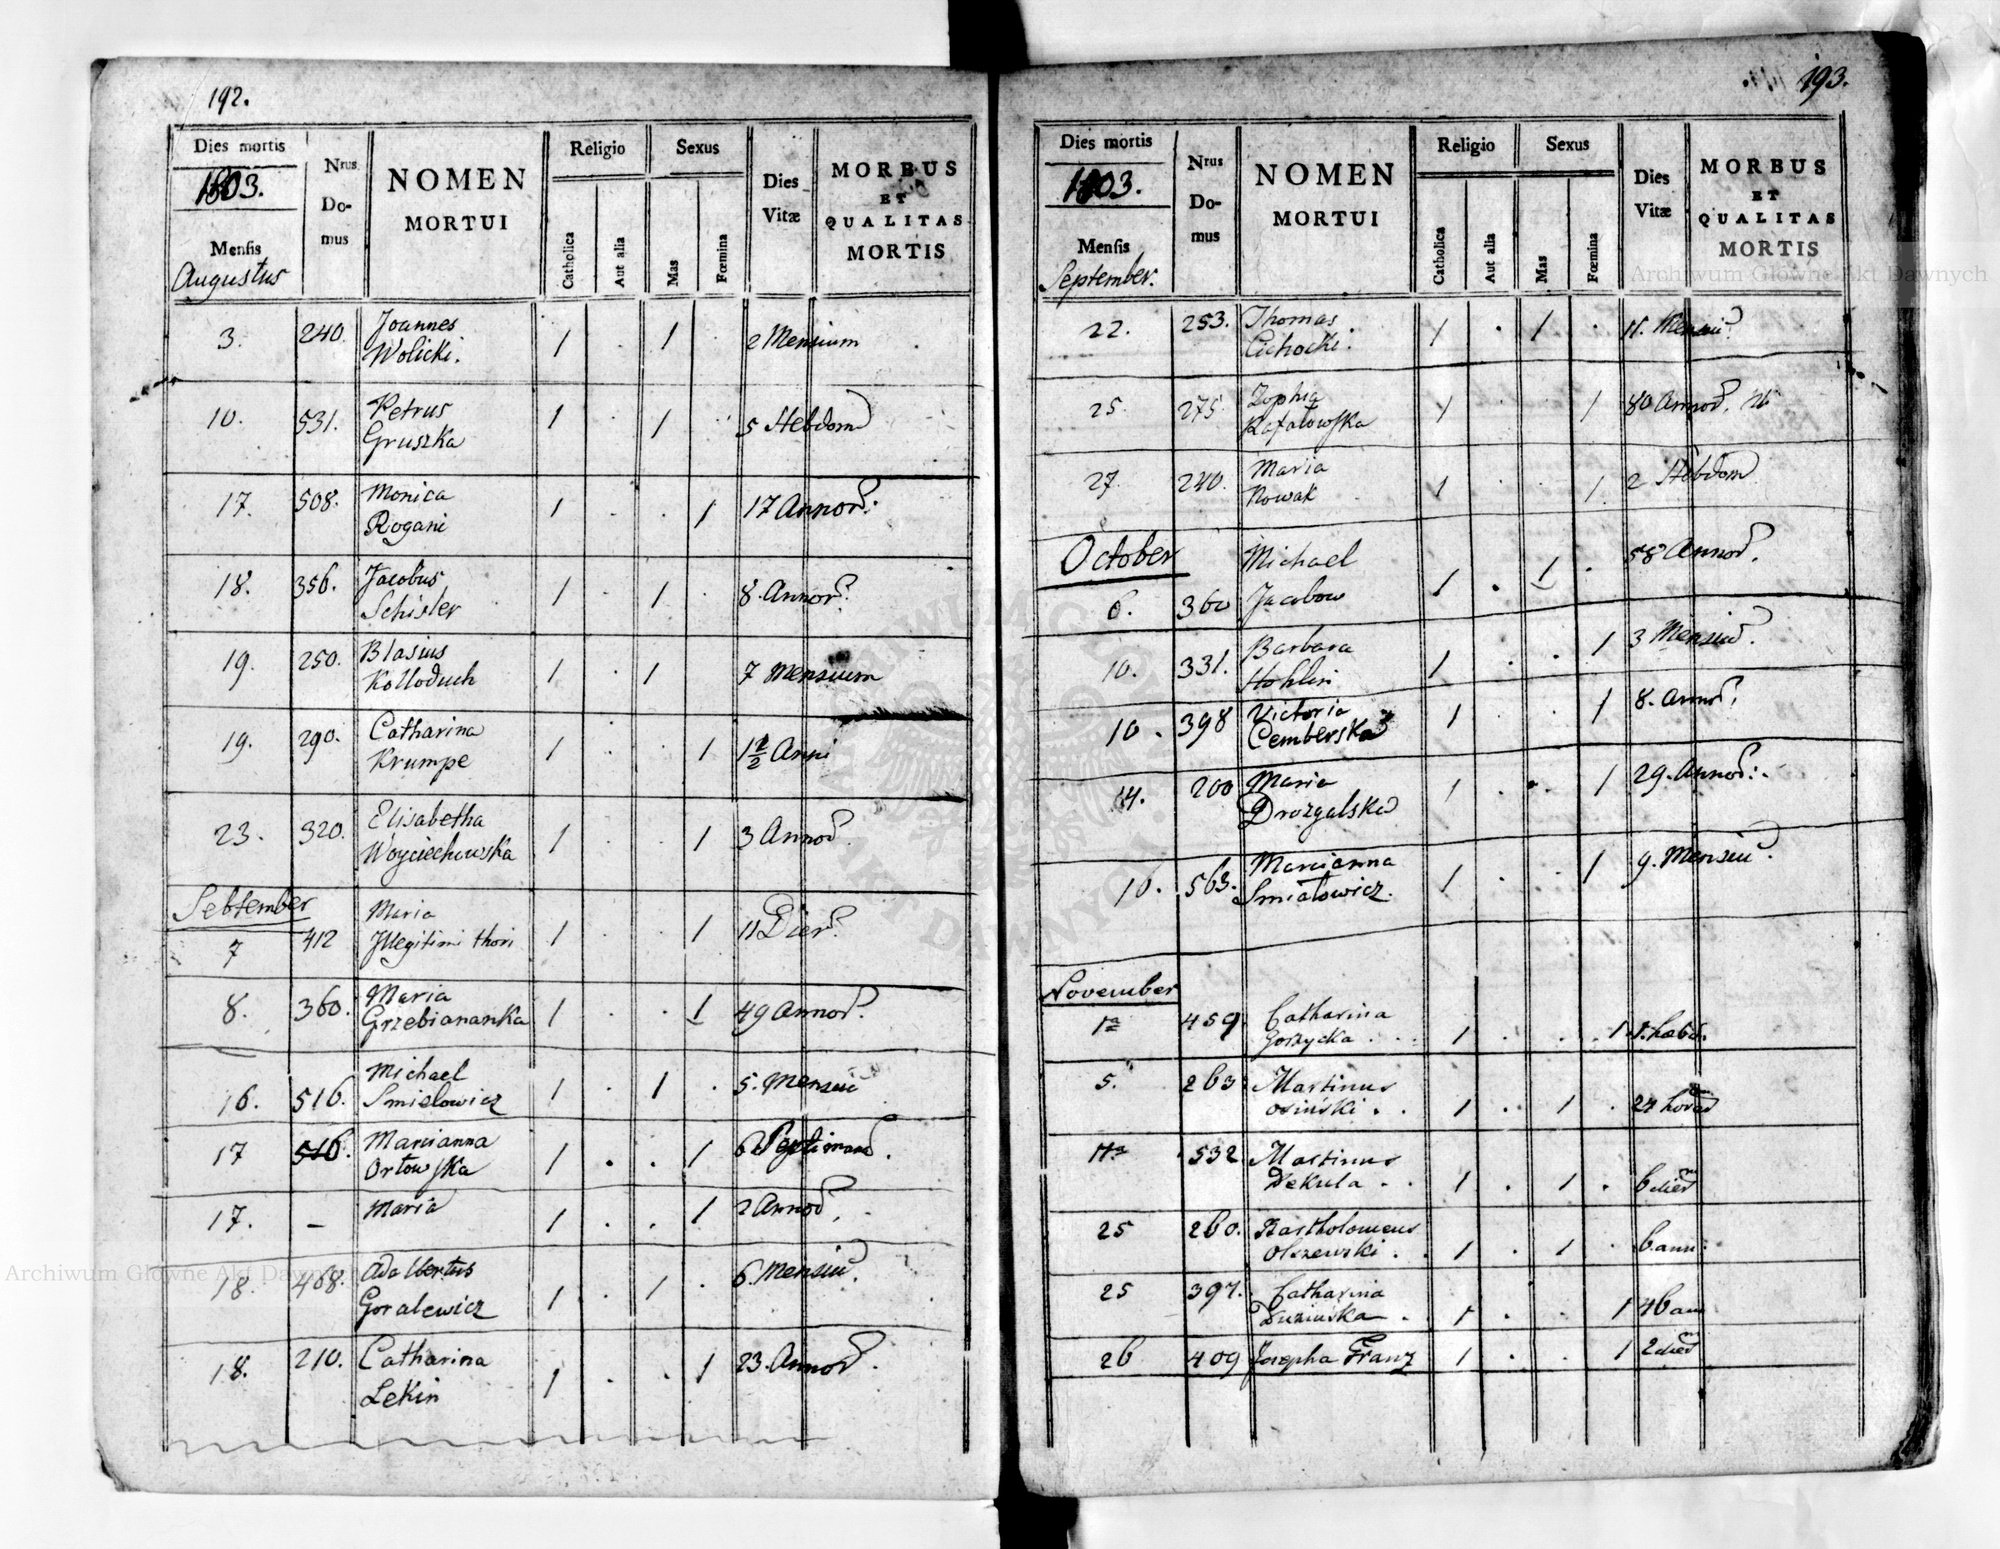 192.
Dies mortis
1803.
Mensis
Augustus
Nrus
Do-
mus
NOMEN
MORTUI
Religio
Catholica
Aut alia
Sexus
Mas
Fœmina
Dies
Vitæ
MORBUS
ET
QUALITAS
MORTIS
3. 240. Joannes
Wolicki. 1 . 1 . 2 Mensium
10. 531. Petrus
Gruszka 1 . 1 . 5 Hebdom
17. 508. Monica
Rogani 1 . . 1 17 Annor.
18. 356. Jacobus
Schisler 1 . 1 . 8. Annor.
19. 250. Blasius
Kolloduch 1 . 1 7 Mensium
19. 290. Catharina
Krumpe 1 . . 1 1 1/2 Anni
23. 320. Elisabetha
Woyciechowska 1 . . 1 3 Annor
September
7 412 Maria
Illegitimi thori 1 . . 1 11 Dier.
8. 360. Maria
Grzebiananka 1 . . 1 49 Annor.
16. 516. Michael
Smielowicz 1 . 1 . 5. Mensiu
17 516. Marianna
Orłowska 1 . . 1 6 Septiman
17. – Maria 1 . . 1 2 Annor.
18. 468. Adalbertus
Goralewicz 1 . 1 . 6. Mensiu.
18. 210. Catharina
Lekin 1 . . 1 23. Annor.
193.
Dies mortis
1803.
Mensis
September.
Nrus
Do-
mus
NOMEN
MORTUI
Religio
Catholica
Aut alia
Sexus
Mas
Fœmina
Dies
Vitæ
MORBUS
ET
QUALITAS
MORTIS
22. 253. Thomas
Cichocki. 1 . 1 . 11. Mensiu
25. 275. Zophia
Rafałowska 1 . . 1 80 Annor.
27. 240. Maria
Nowak 1 . . 1. 2 Hebdom
October
6. 360 Michael
Jacobow 1 . 1 . 58 Annor.
10. 331. Barbara
Hohlin 1 . . 1 3 Mensiu.
10. 398 Victoria
Cemberska 1 . . 1 8. Annor.
14. 200 Maria
Drozgalska 1 . . 1 29. Annor.
16. 563. Marianna
Smiałowicz. 1 . . 1 9. Mensiu.
November
1a 459. Catharina
Gorzycka . . . 1 . . 1 1. hebd.
5. 263 Martinus
Osiński . . 1 . 1 . 24 horar
11a 532 Martinus
Dekula . . 1 . 1 . 6 dier
25 260. Bartholomeus
Olszewski . . 1 . 1 . 6 ann:
25 397. Catharina
Duzińska . 1 . . 1 46 ann
26 409 Josepha Franz 1 . . 1 2 dier
Archiwum Główne Akt Dawnych
Archiwum Główne Akt Dawnych
ARCHIWUM GŁÓWNE AKT DAWNYCH